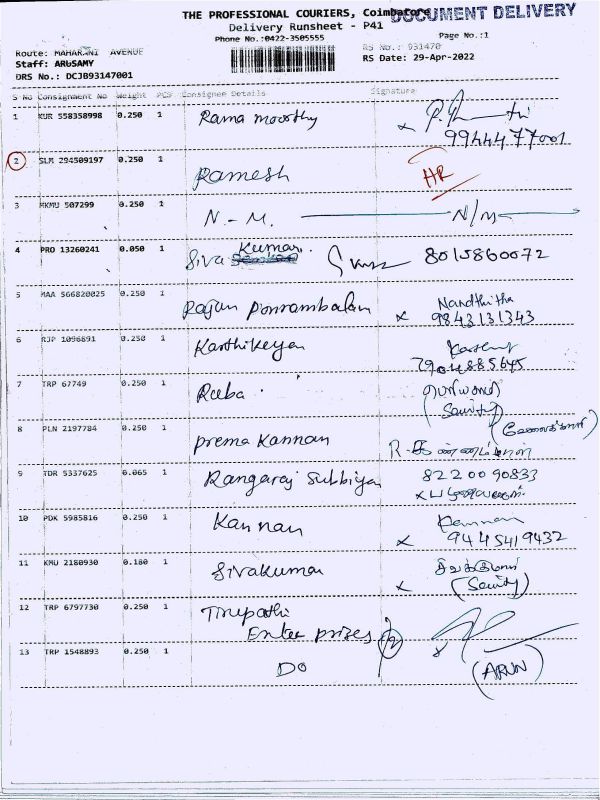 THE PROFESSIONAL COURIERS, Coimbatore
DOCUMENT DELIVERY
Delivery Runsheet - P41
Phone No.:0422-3505555
Page No.:1
Route: MAHARANI AVENUE
RS No.: 931470
Staff: ARUSAMY
RS Date: 29-Apr-2022
DRS No.: DCJB93147001
S No Consignment No Weight PCS Consignee Details Signature
1 KUR 558358998 0.250 1 Rama moorthy
x 9944477001
2 SLM 294509197 0.250 1 Ramesh HR
3 MKMU 507299 0.250 1 N-M. N/M
4 PRO 13260241 0.050 1 Siva Kumar. 8015860072
5 MAA 566820025 0.250 1 Rajan Ponrambalam x Nandhitha
9843131343
6 RJP 1096891 0.250 1 Karthikeyan
7904885645
7 TRP 67749 0.250 1 Reeba.
(Security)
8 PLN 2197784 0.250 1 prema Kannan
9 TDR 5337625 0.065 1 Rangaraj Subbiyan 8220090833
10 PDK 5985816 0.250 1 Kannan Kannan
x 9445419432
11 KMU 2180930 0.180 1 Sivakumar சிவக்குமார்
x (Security)
12 TRP 6797730 0.250 1 Tirupathi
Enter prizes (2)
13 TRP 1548893 0.250 1 DO x (ARUN)